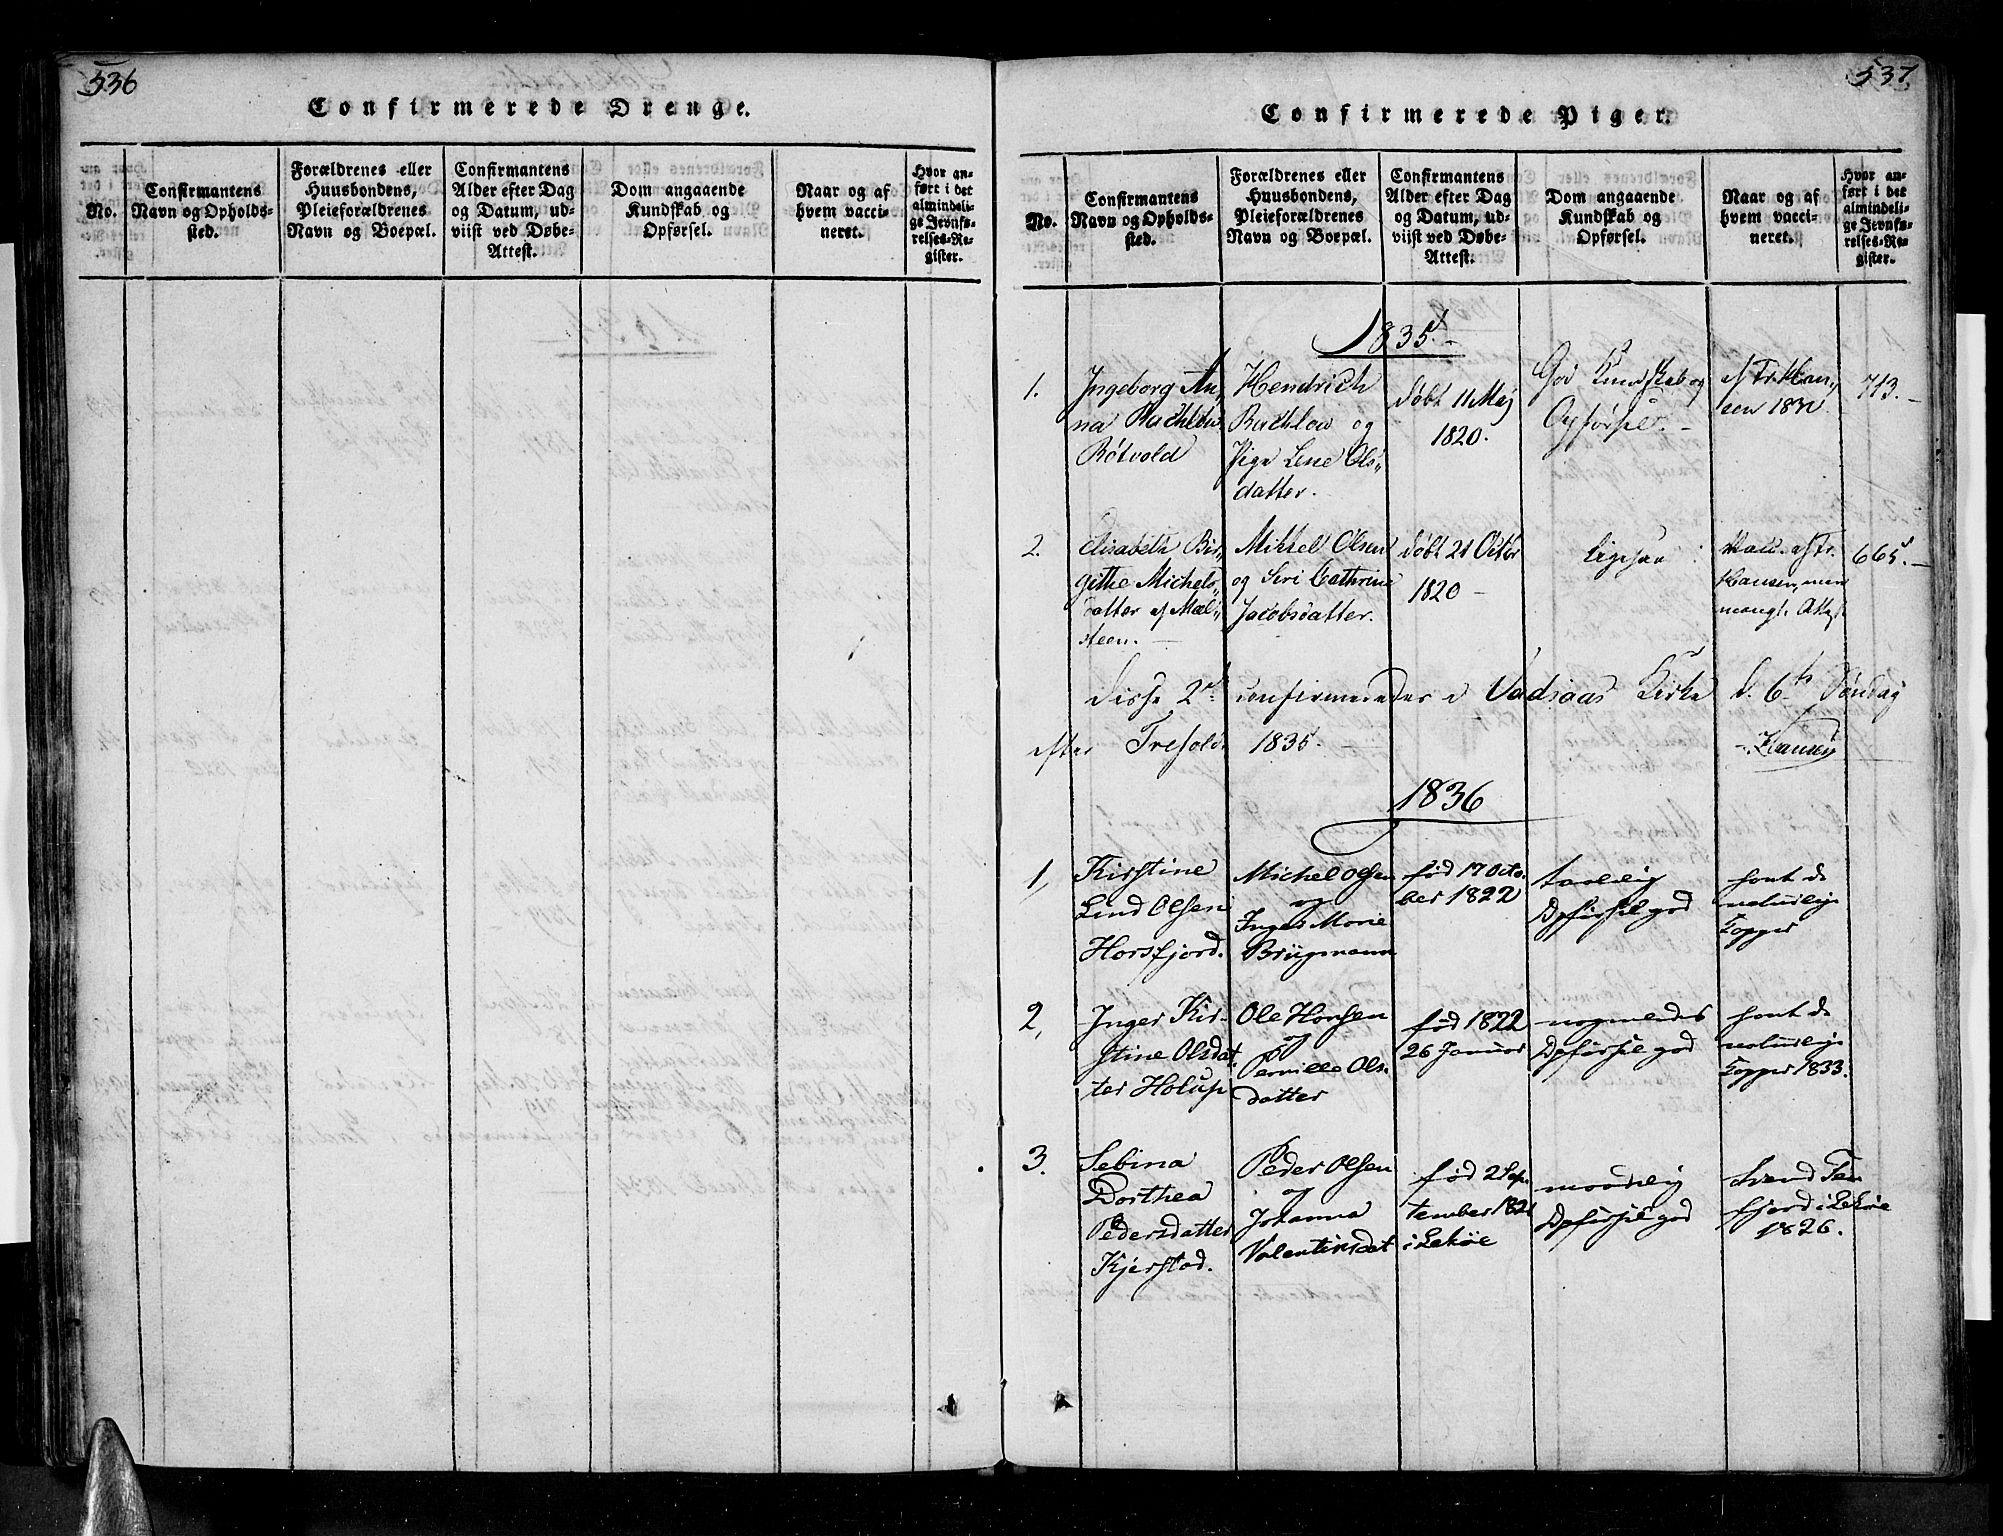 536
Confirmerede Drenge.
No.
Confirmantens
Navn og Opholds-
sted.
Forældrenes eller
Huusbondens,
Pleieforældrenes
Navn og Boepæl.
Confirmantens
Alder efter Dag
og Datum, ud-
viist ved Døbe-
Attest.
Dom angaaende
Kundskab og
Opførsel.
Naar og af
hvem vacci-
neret.
Hvor an-
ført i det
almindeli-
ge Jevnfø-
relses-Re-
gister.
537
Confirmerede Piger.
No.
Confirmantens
Navn og Opholds-
sted.
Forældrenes eller
Huusbondens,
Pleieforældrenes
Navn og Boepæl.
Confirmantens
Alder efter Dag
og Datum, ud-
viist ved Døbe-
Attest.
Dom angaaende
Kundskab og
Opførsel.
Naar og af
hvem vacci-
neret.
Hvor an-
ført i det
almindeli-
ge Jevnfø-
relses-Re-
gister.
1835.
1.
Ingeborg An-
na Buchlow
Røtvold
Hendrich
Buchlow og
Pige Lene Ols-
datter.
døbt 11 Maj
1820.
God Kundskab og
Opførsel.
af Fr. Han-
sen 1831
713.
2.
Elisabeth Bir-
githe Michels-
datter af Mæl-
steen.
Mikkel Olsen
og Siri Cathrine
Jacobsdatter.
døbt 21 Octbr
1820
Ligesaa
Vacc. af Fr.
Hansen, men
mangl. Attest
665.
Disse 2 confirmeredes i Vadsaas Kirke d. 6te Søndag
efter Trefold. 1835. Hansen
1836
1,
Kirstine
Lind Olsen
Horsfjord.
Michel Olsen
og
Inger Marie
Brügmann
født 17 Octo-
ber 1822
taalelig
Opførsel god
havt de
naturlige
Kopper
2,
Inger Kir-
stine Olsdat-
ter Holup
Ole Hansen
og
Pernille Ols-
datter
fød 1822
26 Januar
nogenledes
Opførsel god
havt de
naturlige
Kopper 1833.
3.
Sebina
Dorthea
Pedersdatter
Kjerstad.
Peder Olsen
og
Johanna
Valentinsdat
fød 2 Sep-
tember 1821
i Lekøe
maadelig
Opførsel god
Svend Ter-
fjord i Lekøe
1826.